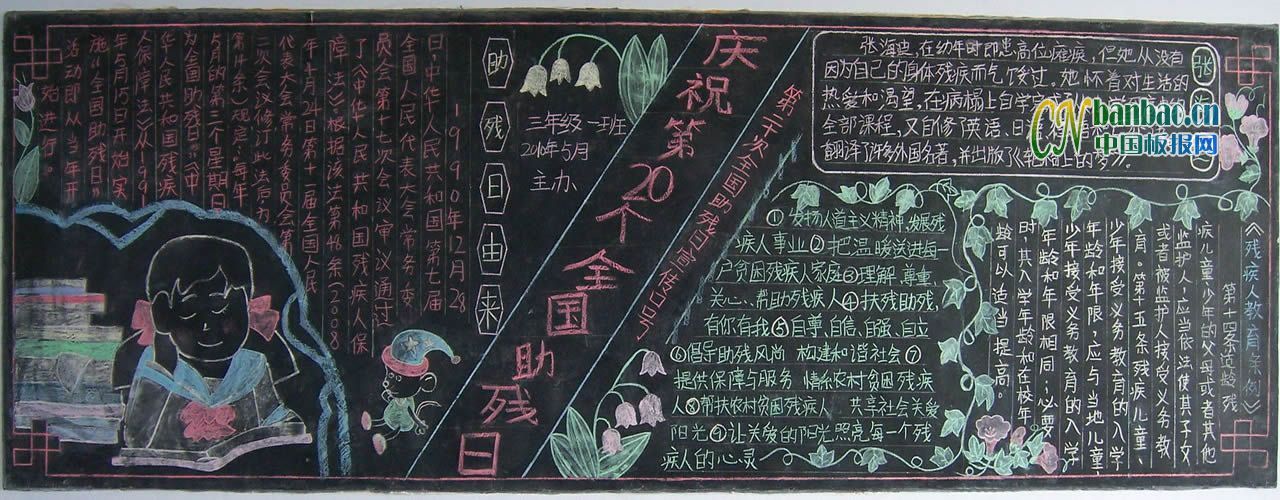 助残日由来
1990年12月28
日,中华人民共和国第七届
全国人民代表大会常务委
员会第十七次会议审议通过
了《中华人民共和国残疾人保
障法》,根据该法第48条(2008
年4月24日第十一届全国人民
代表大会常务委员会第
二次会议修订此法后为
第14条)规定:"每年
5月的第三个星期日
为全国助残日。"《中
华人民共和国残疾
人保障法》从1991
年5月15日开始实
施,"全国助残日"
活动即从当年开
始进行。
三年级一班
2010年5月
主办
庆祝第20个全国助残日
第二十次全国助残日宣传口号
①发扬人道主义精神,发展残
疾人事业②把温暖送进每
户贫困残疾人家庭③理解、尊重、
关心、帮助残疾人④扶残助残,
有你有我⑤自尊、自信、自强、自立
⑥倡导助残风尚 构建和谐社会⑦
提供保障与服务 情系农村贫困残疾
人⑧帮扶农村贫困残疾人 共享社会关爱
阳光⑨让关爱的阳光照亮每一个残
疾人的心灵
张
张海迪,在幼年时即患高位瘫痪,但她从没有
因为自己的身体残疾而气馁过,她怀着对生活的
热爱和渴望,在病榻上自学完
全部课程,又自修了英语、日
翻译了许多外国名著,并出版了《轮椅上的梦》。
CN banbao.cn
中国板报网
《残疾人教育条例》
第十四条适龄残
疾儿童、少年的父母或者其他
监护人,应当依法使其子女
或者被监护人接受义务教
育。第十五条残疾儿童、
少年接受义务教育的入学
年龄和年限,应与当地儿童、
少年接受义务教育的入学
年龄和年限相同;必要
时,其入学年龄和在校年
龄可以适当提高。